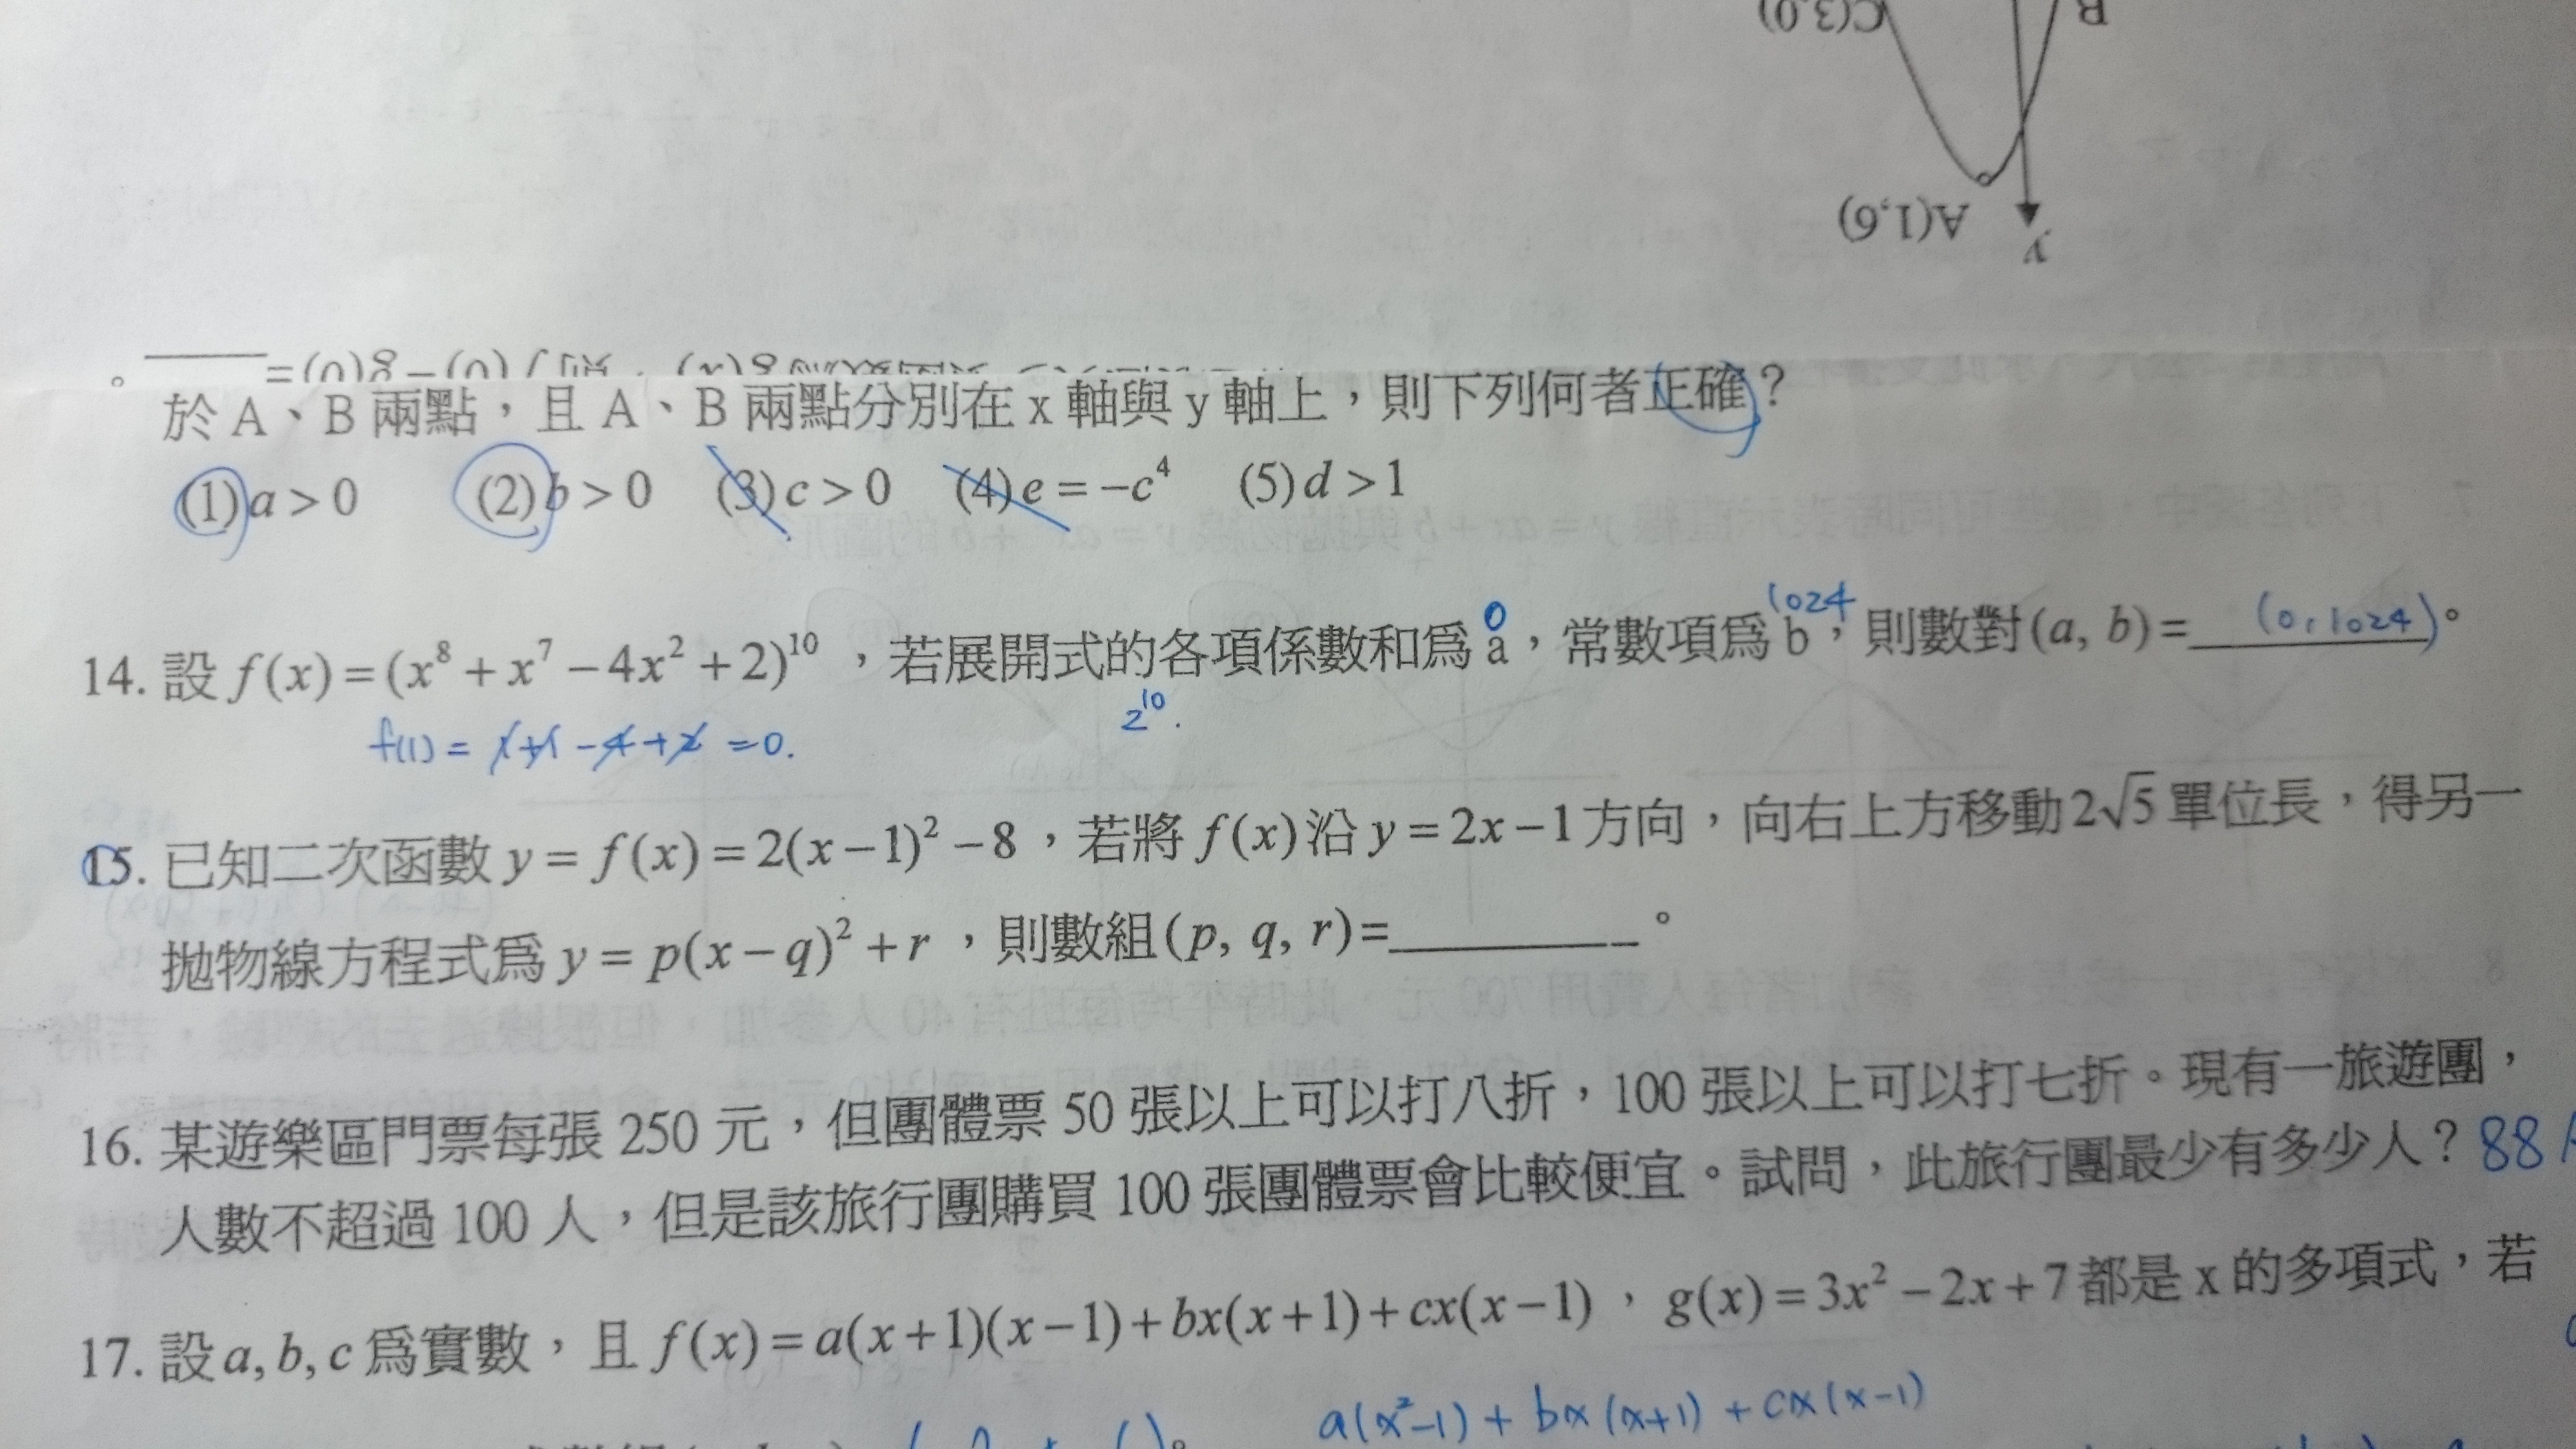 C(3,0)
B
A(1,6)
y
於 A、B 兩點，且 A、B 兩點分別在 x 軸與 y 軸上，則下列何者正確？
(1) a > 0 (2) b > 0 (3) c > 0 (4) e = −c⁴ (5) d > 1
0 1024
14. 設 f(x) = (x⁸ + x⁷ − 4x² + 2)¹⁰，若展開式的各項係數和為 a，常數項為 b，則數對 (a, b) = (0, 1024)。
2¹⁰.
f(1) = 1+1−4+2 = 0.
15. 已知二次函數 y = f(x) = 2(x−1)² − 8，若將 f(x) 沿 y = 2x − 1 方向，向右上方移動 2√5 單位長，得另一
拋物線方程式為 y = p(x − q)² + r，則數組 (p, q, r) = ________。
16. 某遊樂區門票每張 250 元，但團體票 50 張以上可以打八折，100 張以上可以打七折。現有一旅遊團，
人數不超過 100 人，但是該旅行團購買 100 張團體票會比較便宜。試問，此旅行團最少有多少人？ 88
17. 設 a, b, c 為實數，且 f(x) = a(x+1)(x−1) + bx(x+1) + cx(x−1)，g(x) = 3x² − 2x + 7 都是 x 的多項式，若
a(x²−1) + bx(x+1) + cx(x−1)